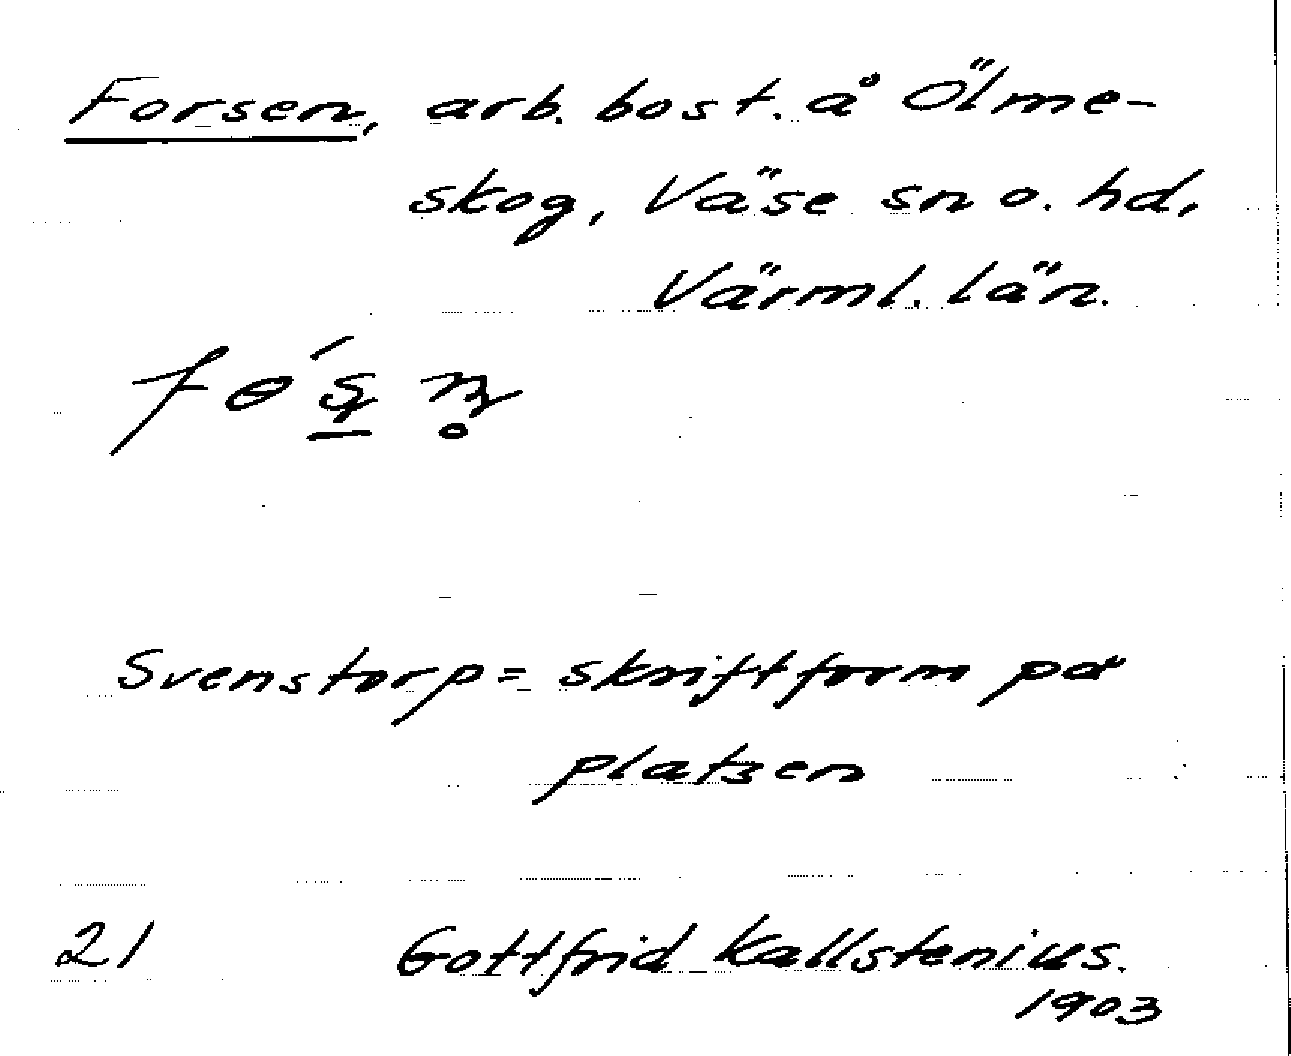 Forsen, arb. bost. å Ölme-
skog, Väse sn o. hd,
Värml. län.
Svenstorp = skriftform på
platsen
21 Gottfrid Kallstenius.
1903